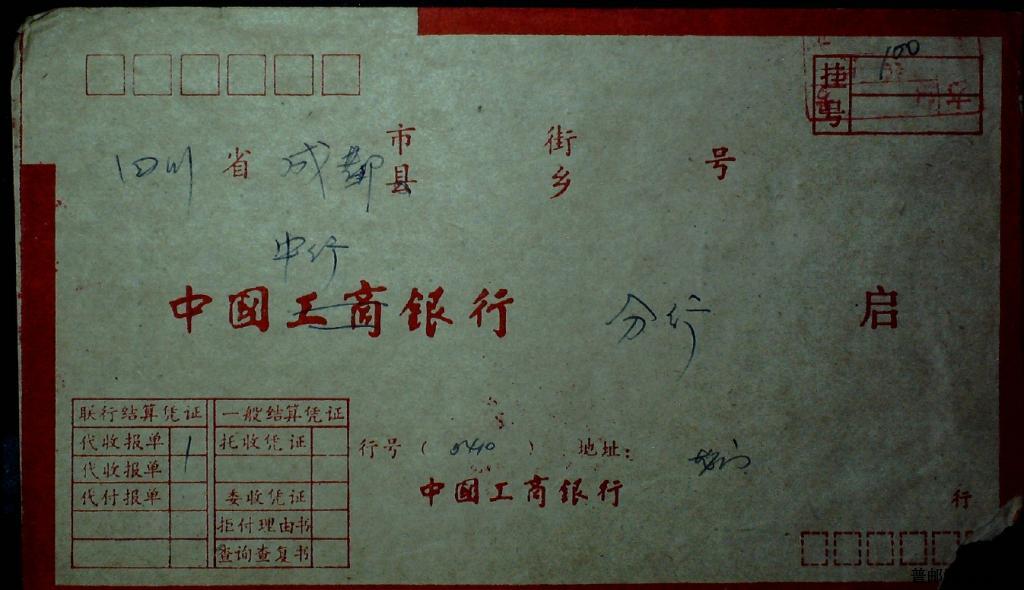 挂号 100
四川 省 成都 市县 街乡 号
中行
中国工商银行 分行 启
联行结算凭证 一般结算凭证
代收报单 1 托收凭证
代收报单
代付报单 委收凭证
拒付理由书
查询查复书
行号( 0410 ) 地址:
中国工商银行 行
普邮